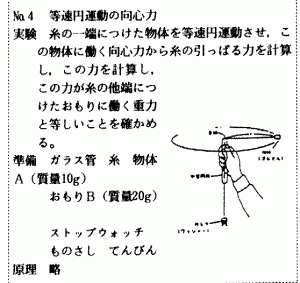 No.4 等速円運動の向心力
実験 糸の一端につけた物体を等速円運動させ，こ
の物体に働く向心力から糸の引っぱる力を計算
し，この力を計算し，
この力が糸の他端につ
けたおもりに働く重力
と等しいことを確かめ
る。
準備 ガラス管 糸 物体
A（質量10g）
おもりB（質量20g）
ストップウォッチ
ものさし てんびん
原理 略